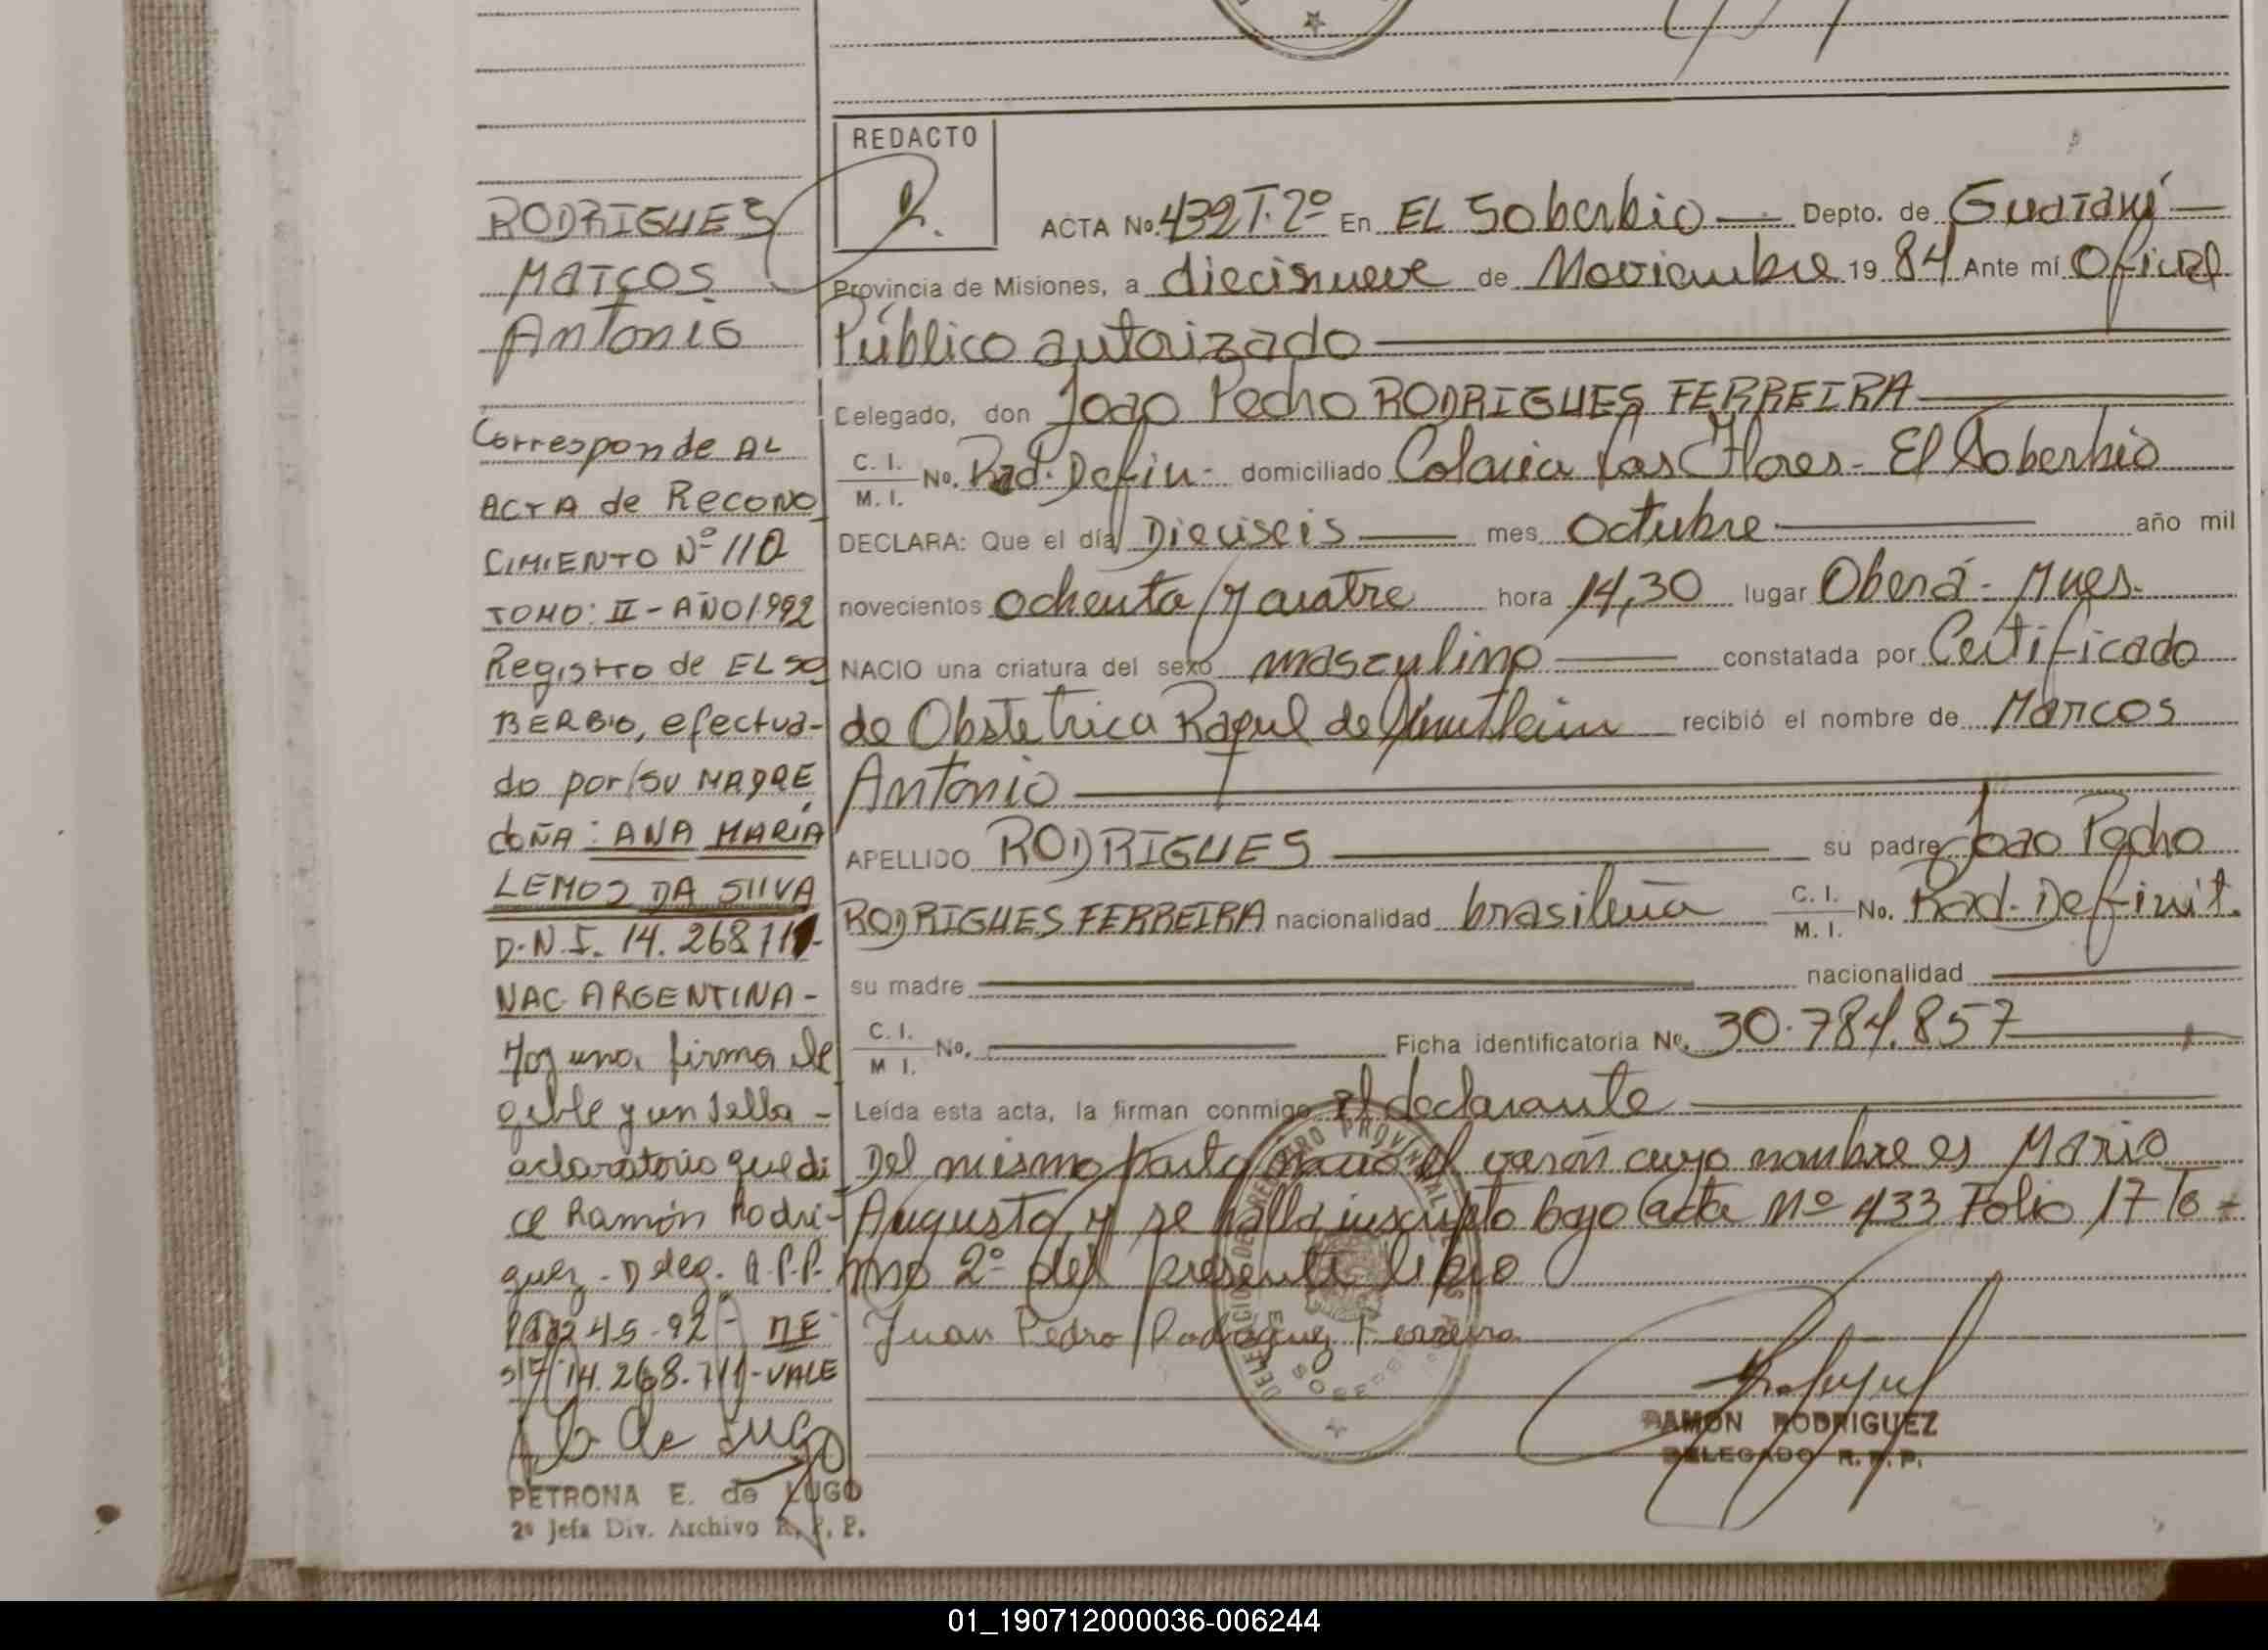 RODRIGUES
MARCOS
Antonio
Corresponde AL
ACTA de RECONO
CIMIENTO Nº 110
TOMO: II - AÑO 1.992
Registro de EL SO
BERBIO, efectua-
do por su MADRE
DOÑA: ANA MARIA
LEMOS DA SILVA
D.N.I. 14.268.711-
NAC ARGENTINA -
Hoy una firma ile
gible y un sello -
aclaratorio que di
ce Ramón Rodri-
guez - Deleg. R.P.P.
45-92- ME
14.268.711-VALE
de Lugo
PETRONA E. de LUGO
2º Jefa Div. Archivo R. P. P.
REDACTO
ACTA No. 432 T. 2º En EL Soberbio Depto. de Guaraní
Provincia de Misiones, a diecinueve de Noviembre 19 84 Ante mí Oficial
Público autorizado
Delegado, don Joao Pedro RODRIGUES FERREIRA
C. I. M. I. No. Rad. Defin- domiciliado Colonia Las Flores - El Soberbio
DECLARA: Que el día Dieciseis mes octubre año mil
novecientos ochenta y cuatro hora 14,30 lugar Oberá - Mnes.
NACIO una criatura del sexo masculino constatada por Certificado
de Obstetrica Raquel de recibió el nombre de Marcos
Antonio
APELLIDO RODRIGUES su padre Joao Pedro
RODRIGUES FERREIRA nacionalidad brasileña C. I. M. I. No. Rad. Definit.
su madre nacionalidad
C. I. M I. No. Ficha identificatoria No. 30.784.857
Leída esta acta, la firman conmigo el declarante
Del mismo parto nació el varón cuyo nombre es Mario
Augusto y se halla inscripto bajo acta Nº 433 Folio 17 To-
mo 2º del presente libro
Juan Pedro Rodriguez Ferreira
RAMON RODRIGUEZ
DELEGADO R. P. P.
01_190712000036-006244